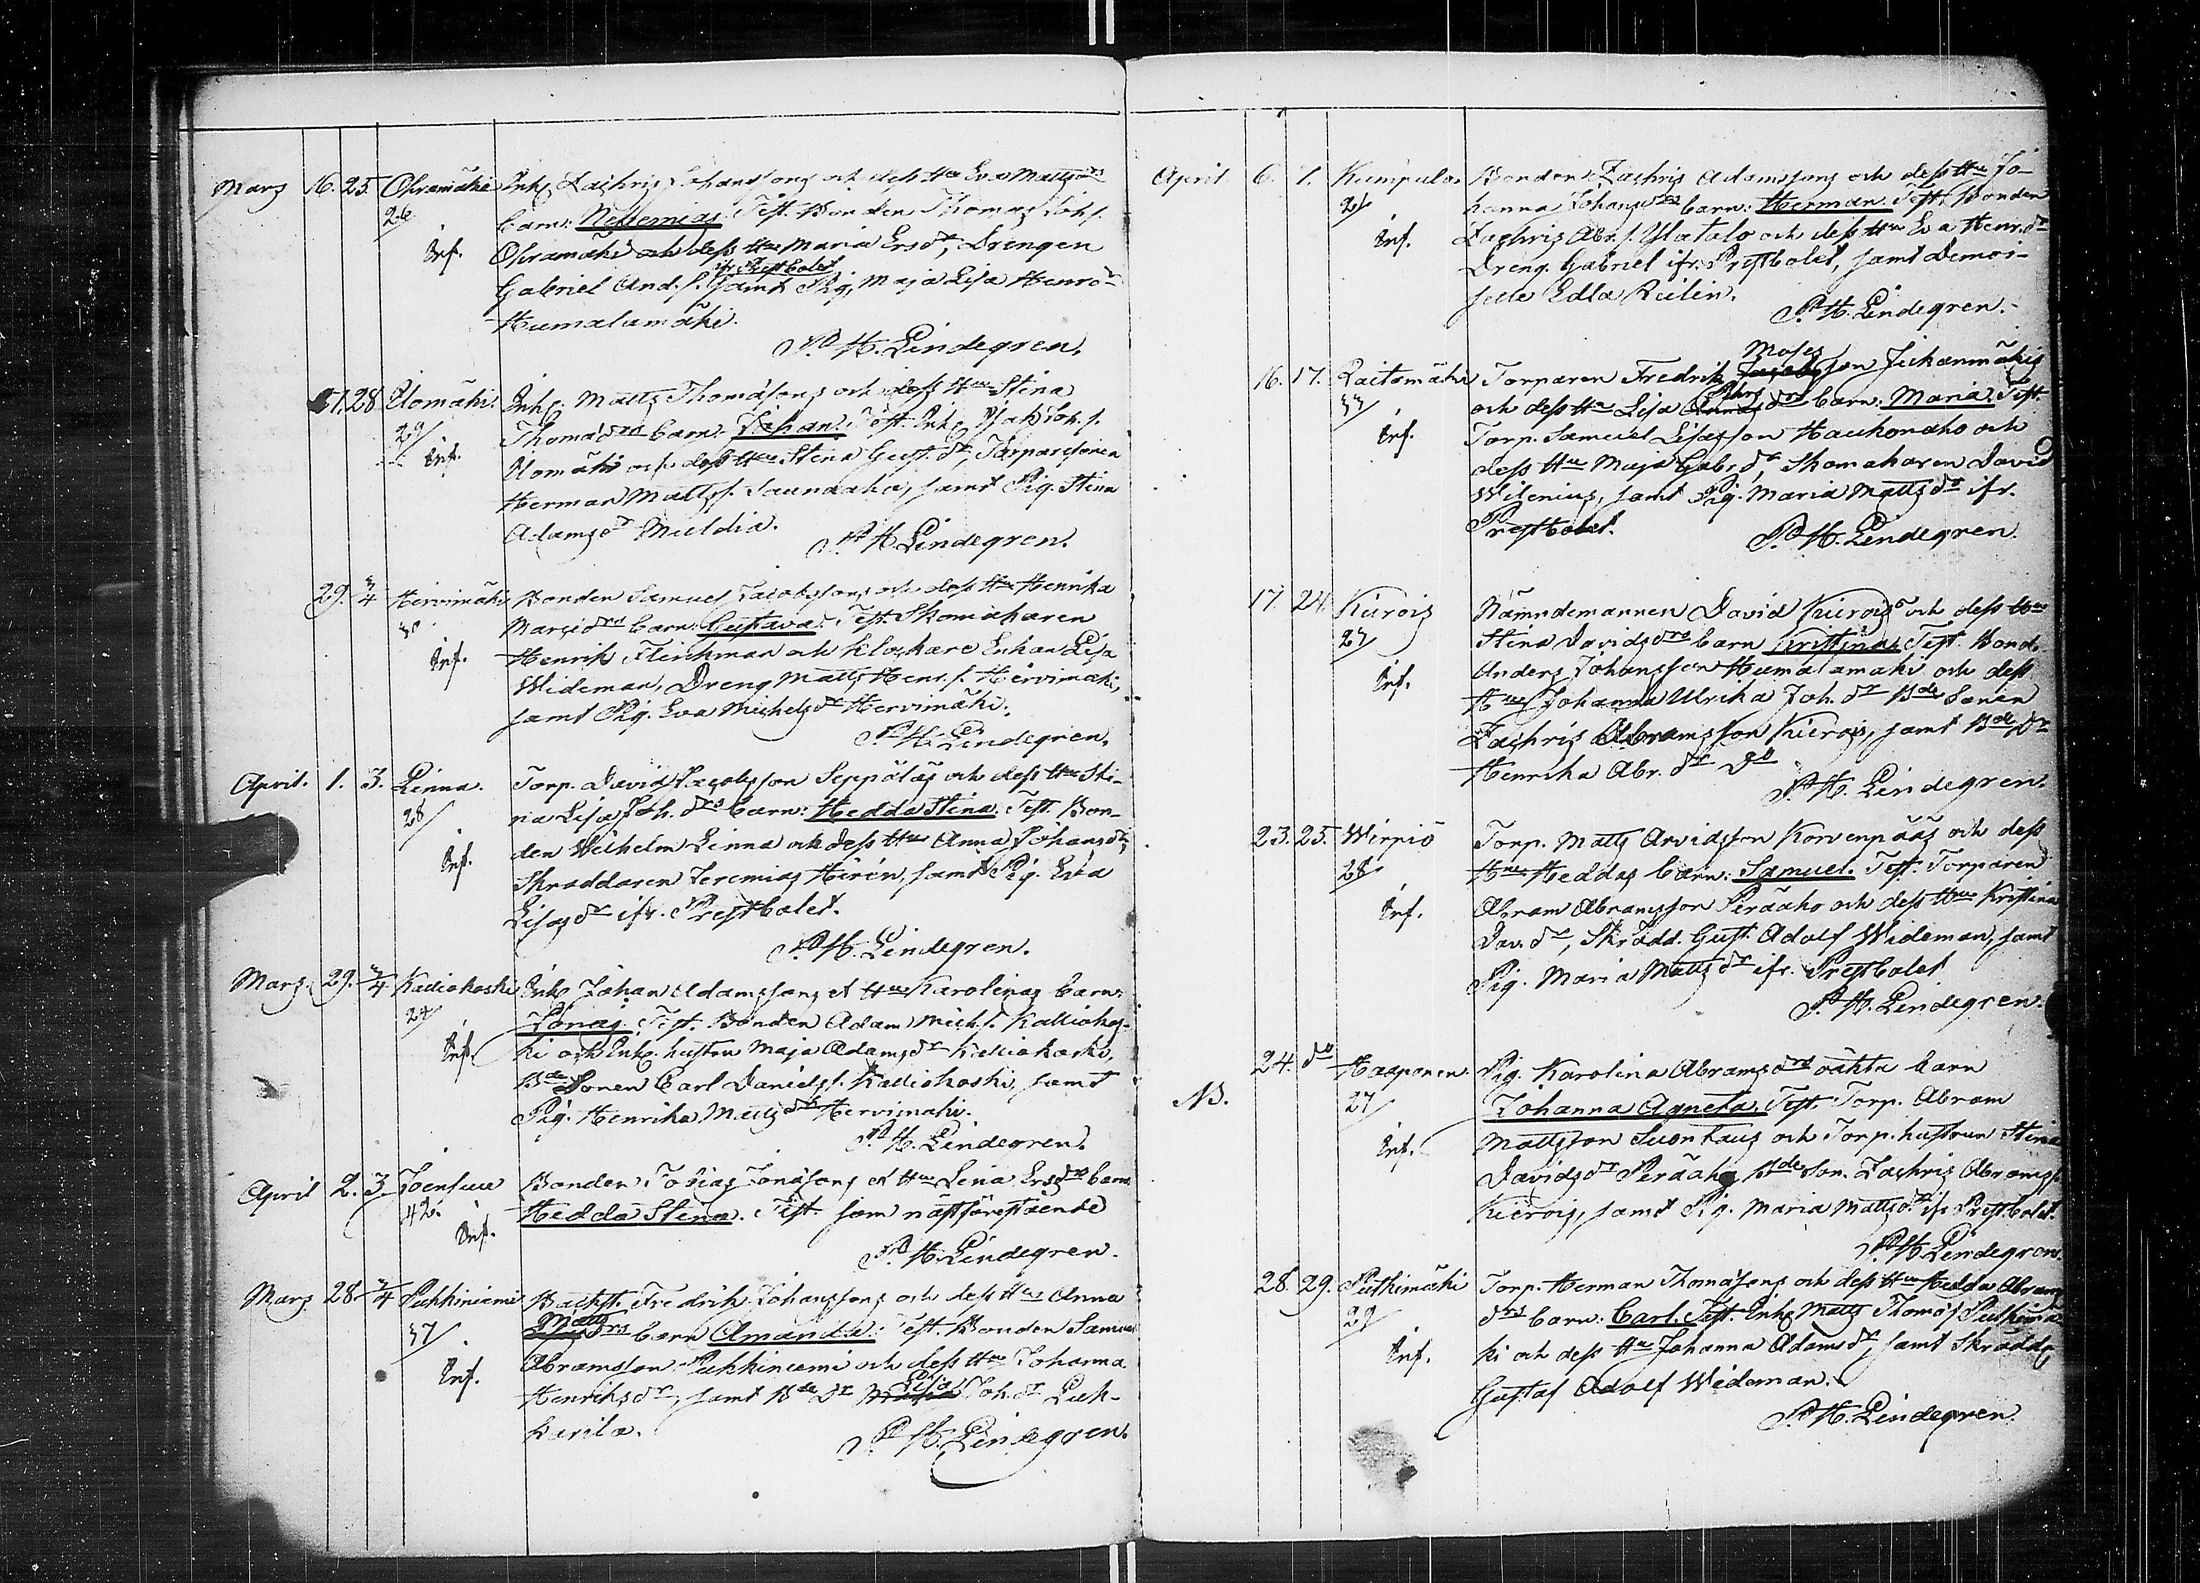 Mars 16. 25. Ohramäki Inh. Zachris Johanssons och dess Hu Eva Mattsdrs
26 barn: Nehemias. Test. Bonden Thomas Joh.s.
Inf. Ohramäki och dess Hu Maria Ersdr, Drengen
ifr. Prestbolet
Gabriel And.s. samt Pig. Maja Lisa Henrdr
Humalamäki.
P. H. Lindegren.
27. 28 Uomäki. Inh. Matts Thomassons och dess Hu Stina
29/ Thomædrs barn: Johan. Test. Inh. Isak Joh.s.
Inf. Uomäki och dess Hu Stina Gust.dr, Torparesonen
Herman Matts.s. Saunaaho, samt Pig. Stina
Adamsdr Muldia.
P. H. Lindegren.
29. 3/4 Hirvimäki Bonden Samuel Jacobssons och dess Hu Henrika
30 Marcidrs barn: Gustava. Test. Skomakaren
Inf. Henrik Flinkman och Klockare Enkan Lisa
Wideman, Dreng Matts Henr.s. Hirvimäki,
samt Pig. Eva Michelsdr Hervimäki.
P. H. Lindegren.
April. 1. 3. Linna. Torp. David Jacobsson Seppäläs och dess Hu Sti-
28/ na Lisa Joh.drs barn: Hedda Stina. Test. Bon-
Inf. den Wilhelm Linna och dess Hu Anna Johansdr,
Skraddaren Jeremias Hirén, samt Pig. Eva
Lisasdr ifr. Prestbolet.
P. H. Lindegren.
Mars. 29. 3/4 Kalliokoski Inh. Johan Adamssons et Hu Karolinas barn:
24/ Jonas. Test. Bonden Adam Mich.s. Kalliokos-
Inf. ki och Inh. hustru Maja Adamsdr Kalliokoski,
Bde Sonen Carl Daniels.s. Kalliokoski, samt
Pig. Henrika Mattsdr Hervimäki.
P. H. Lindegren.
April 2. 3. Joensuu Bonden Tobias Jonassons et Hu Lena Ersdrs barn
42. Hedda Stina. Test. som nästföregående
Inf. P. H. Lindegren.
Mars 28. 3/4 Puhkiniemi Backst. Fredrik Johanssons och dess Hu Anna
Matts
37/ drs barn Amanda. Test. Bonden Samuel
Inf. Abramsson Puhkiniemi och dess Hu Johanna
Lisa
Henriksdr, samt Bde Dr Maria Joh.dr Luk-
karila.
P. H. Lindegren.
April 6. 7. Kumpula. Bonden Zachris Adamssons och dess Hu Jo-
21/ hanna Johansdrs barn: Herman. Test. Bonden
Inf. Zachris Abr.s. Ylatalo och dess Hu Eva Henr.dr
Dreng. Gabriel ifr. Prestbolet, samt Demoi-
selle Edla Relin.
P. H. Lindegren.
Moses
16. 17. Raitomäki Torparen Fredrik Jacobsson Juhanmäkis
33/ och dess Hu Lisa drs barn: Maria. Test.
Inf. Torp. Samuel Lisasson Haukonaho och
dess Hu Maja Gabr.dr, Skomakaren David
Wilenius, samt Pig. Maria Mattsdr ifr.
Prestbolet. P. H. Lindegren.
17. 24. Kierois Nämndemannen David Kierois och dess Hu
27/ Stina Davidsdrs barn Kristina. Test. Bond.
Inf. Anders Johansson Humalamäki och dess
Hu Johanna Ulrika Joh.dr Bde Sonen
Zachris Abramsson Kierois, samt Bde Dr
Henrika Abr.dr do
P. H. Lindegren.
23. 25. Wirpiö Torp. Matts Arvidsson Korvenpääs och dess
28. Hu Heddas barn: Samuel. Test. Torparen
Inf. Abram Abramsson Peräaho och dess Hu Kristina
Dav.dr, Skrädd. Gust. Adolf Wideman, samt
Pig. Maria Mattsdr ifr. Prestbolet
P. H. Lindegren.
24. do Haaponen. Pig. Karolina Abramsdrs oäkta barn
N. 27/ Johanna Agneta. Test. Torp. Abram
Inf. Mattsson Suontaus och Torp. hustrun Stina
Davidsdr Peräaho, Bde Son. Zachris Abramss.
Kierois, samt Pig. Maria Mattsdr ifr Prestbolet.
P. H. Lindegren.
28. 29. Putkimäki Torp. Herman Thomassons och dess Hu Hedda Abrams
29/ drs barn: Carl. Test. Inh. Matts Thomæs. Putkimä
Inf. ki och dess Hu Johanna Adamsdr, samt Skrädd.
Gustaf Adolf Wideman.
P. H. Lindegren.